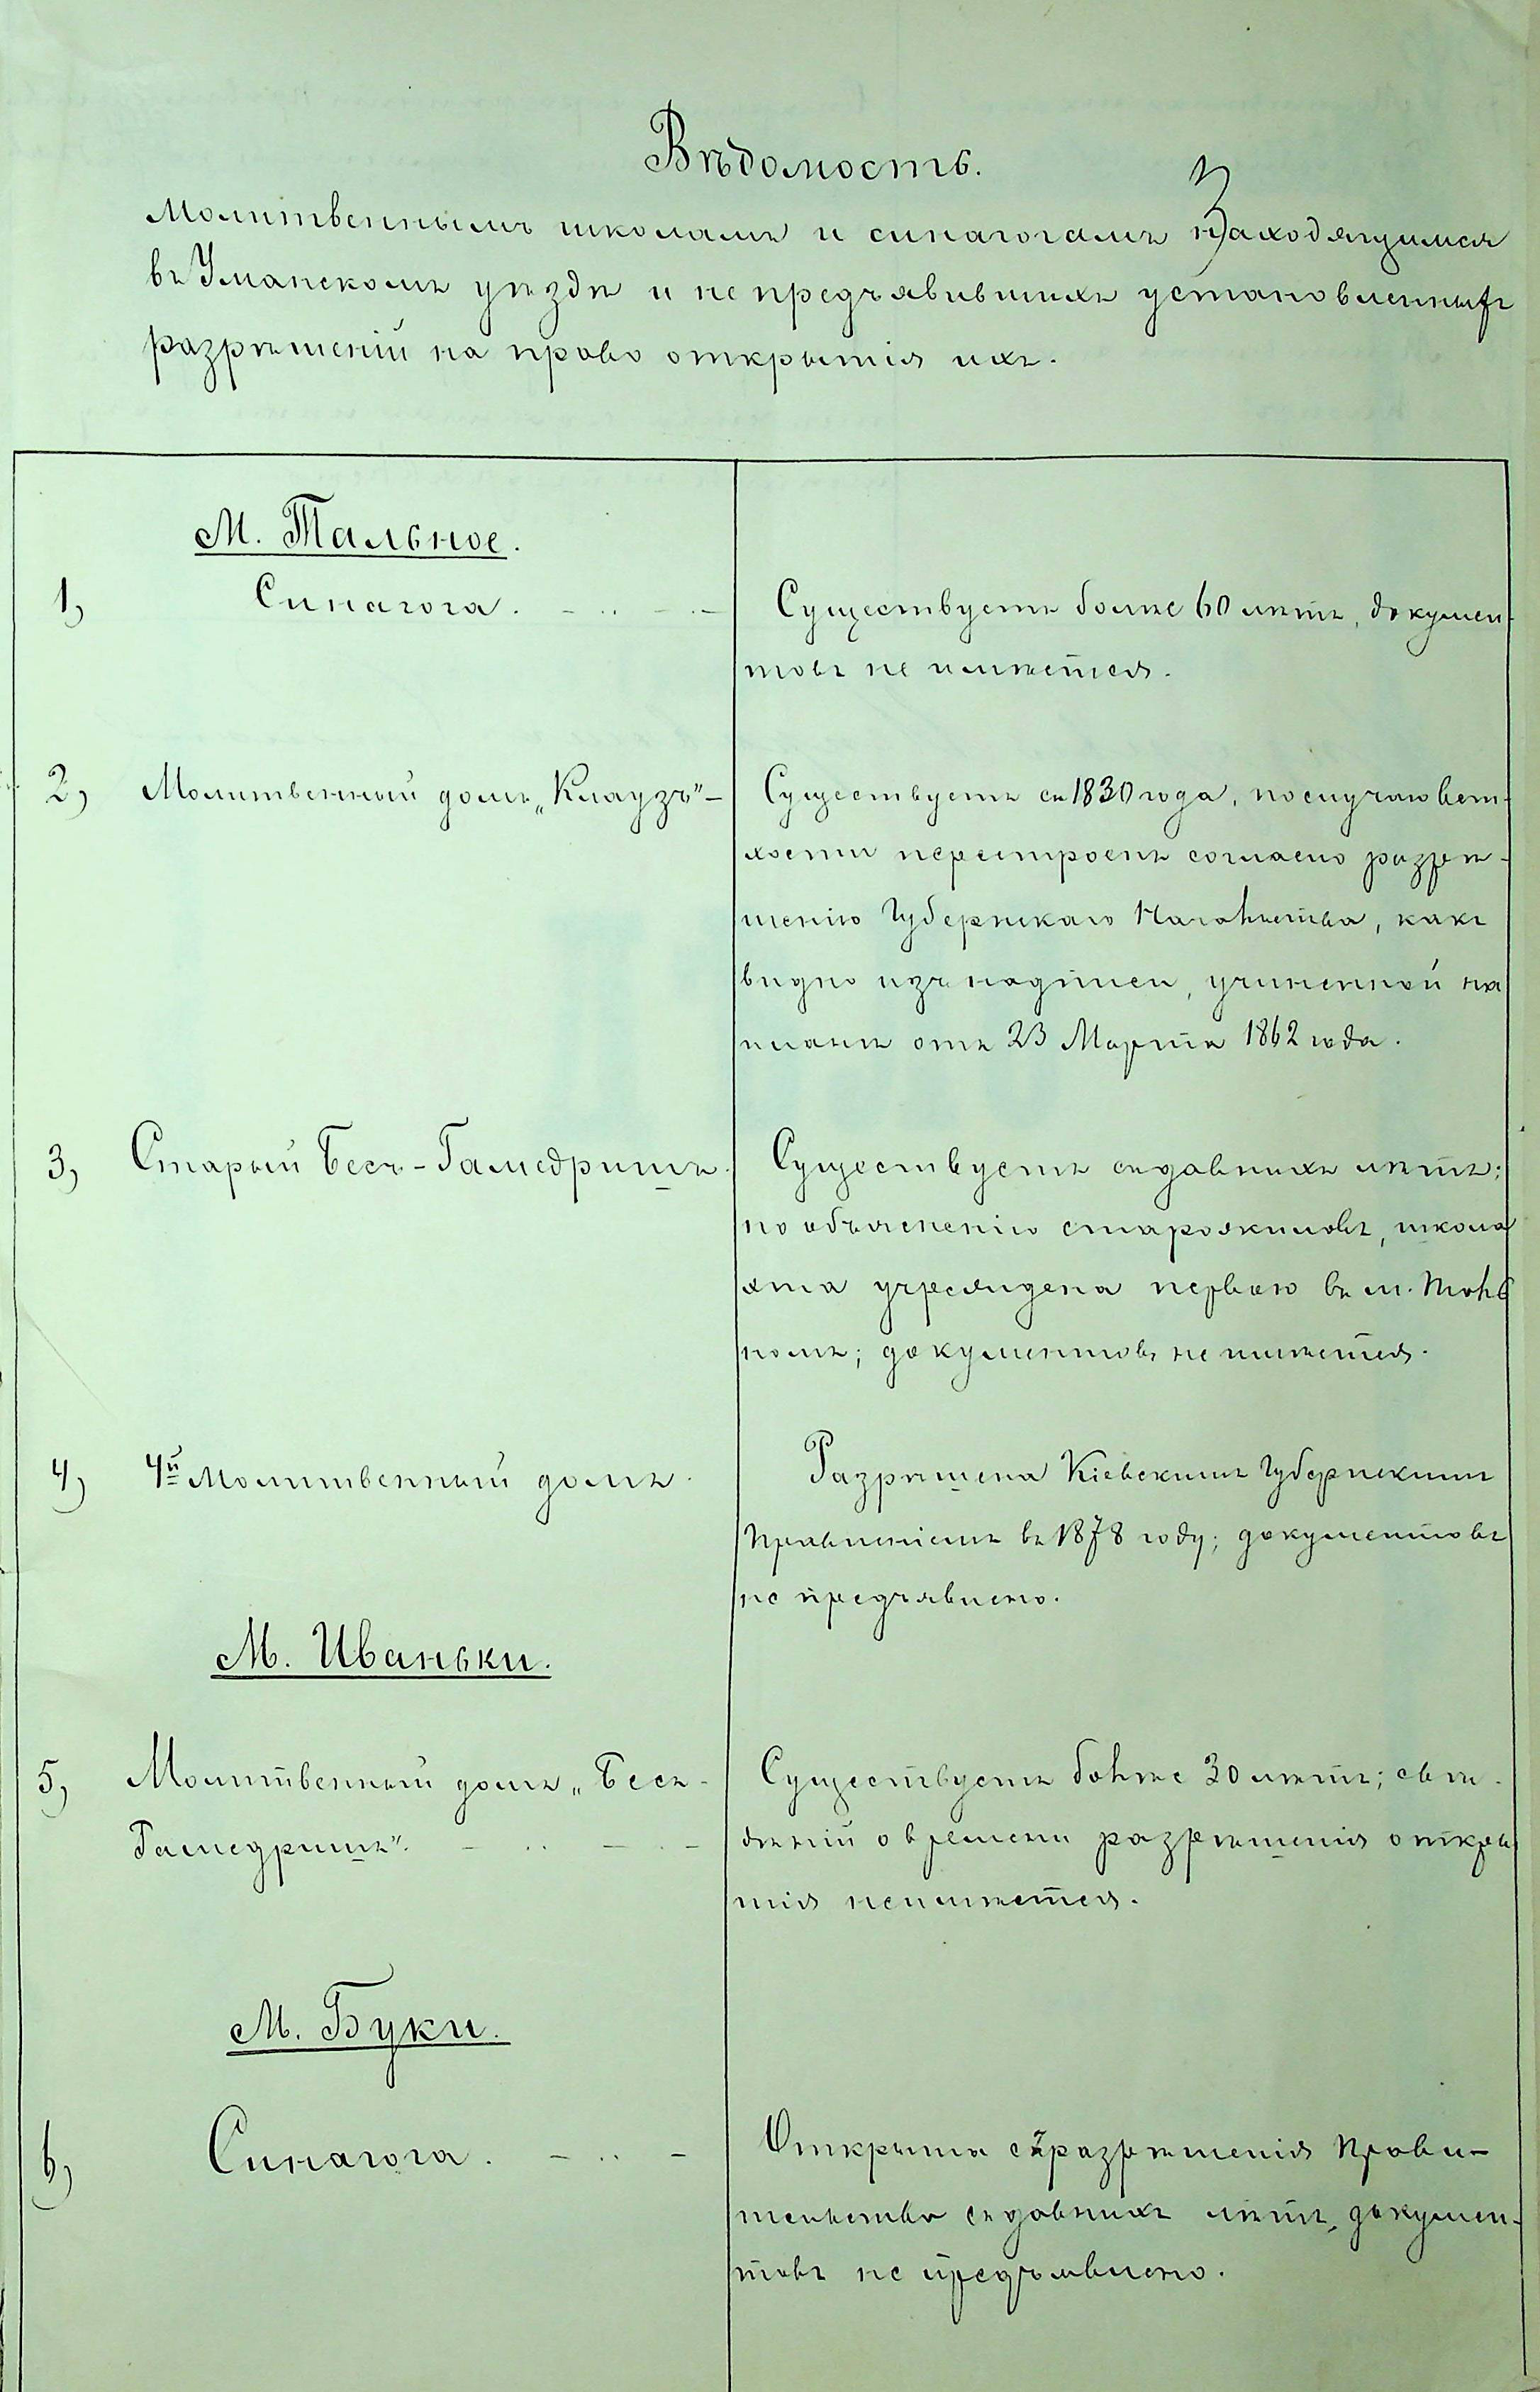 Вѣдомость.
Молитвеннымъ школамъ и синагогамъ находящимся
въ Уманскомъ уѣздѣ и не предъявившихъ установленныхъ
разрѣшеній на право открытія ихъ.
М. Тальное.
1, Синагога.
Существуетъ болѣе 60 лѣтъ, докумен-
товъ не имѣется.
2, Молитвенный домъ „Клаузъ"
Существуетъ съ 1830 года, по случаю вет-
хости перестроенъ согласно разрѣ-
шенію Губернскаго Начальства, какъ
видно изъ надписи, учиненной на
планѣ отъ 23 Марта 1862 года.
3, Старый Бесъ-Гамедришъ.
Существуетъ съ давнихъ лѣтъ;
по объясненію старожиловъ, школа
эта учреждена первою въ м. Таль
номъ; документовъ не имѣется.
4, 4й Молитвенный домъ.
Разрѣшена Кіевскимъ Губернскимъ
Правленіемъ въ 1878 году; документовъ
не предъявлено.
М. Иваньки.
5, Молитвенный домъ „Бесъ-
Гамедришъ".
Существуетъ болѣе 30 лѣтъ; свѣ-
дѣній о времени разрѣшенія откры
тія не имѣется.
М. Буки.
6, Синагога.
Открыта съ разрѣшенія Прави-
тельства съ давнихъ лѣтъ, докумен-
товъ не предъявлено.